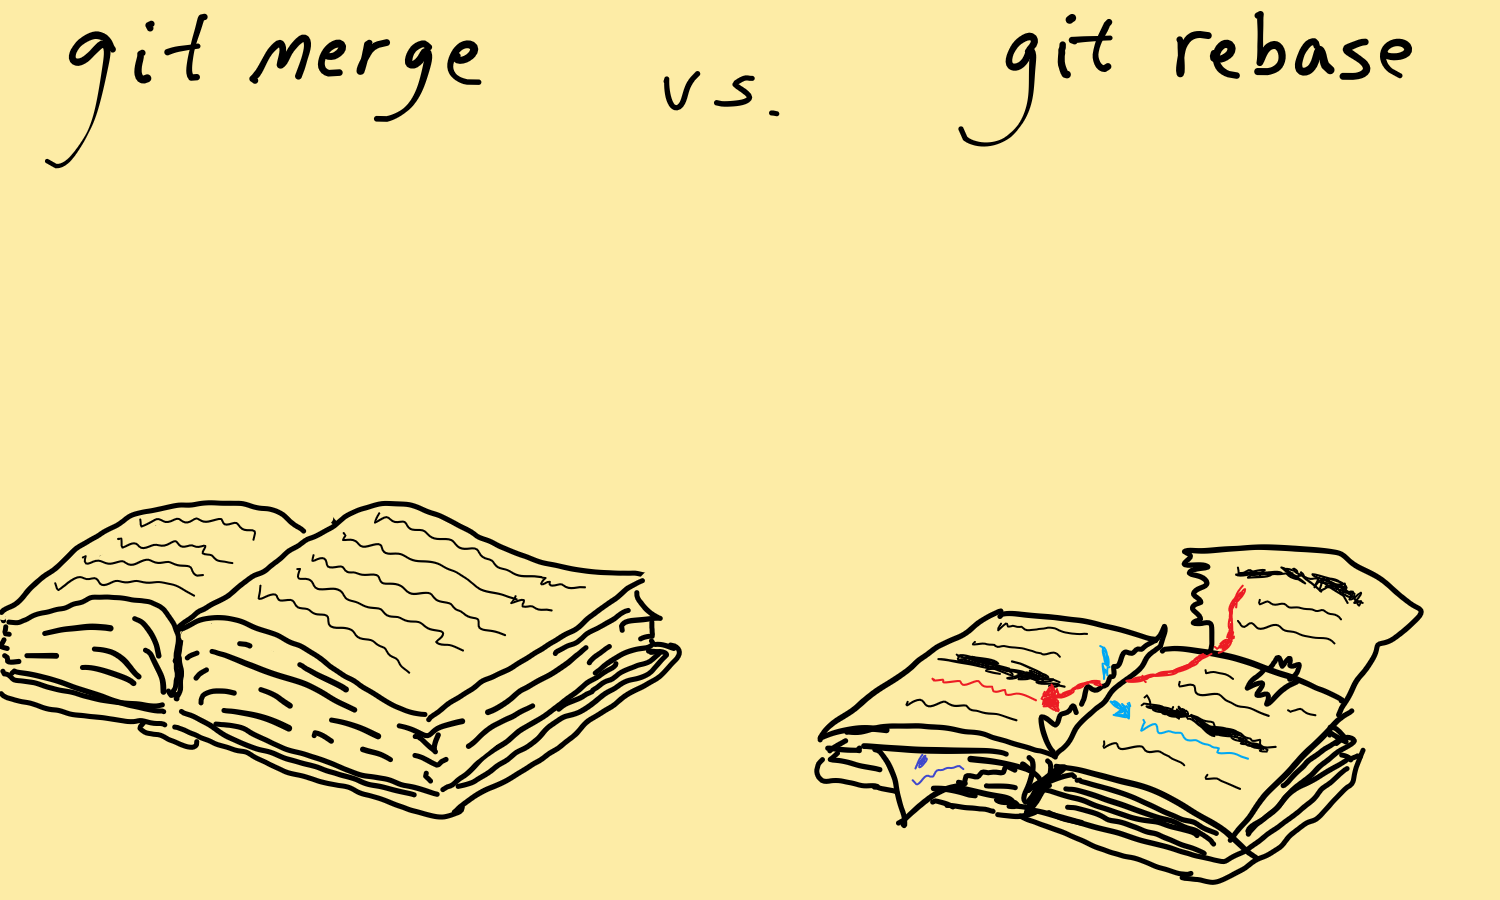 git merge
vs.
git rebase